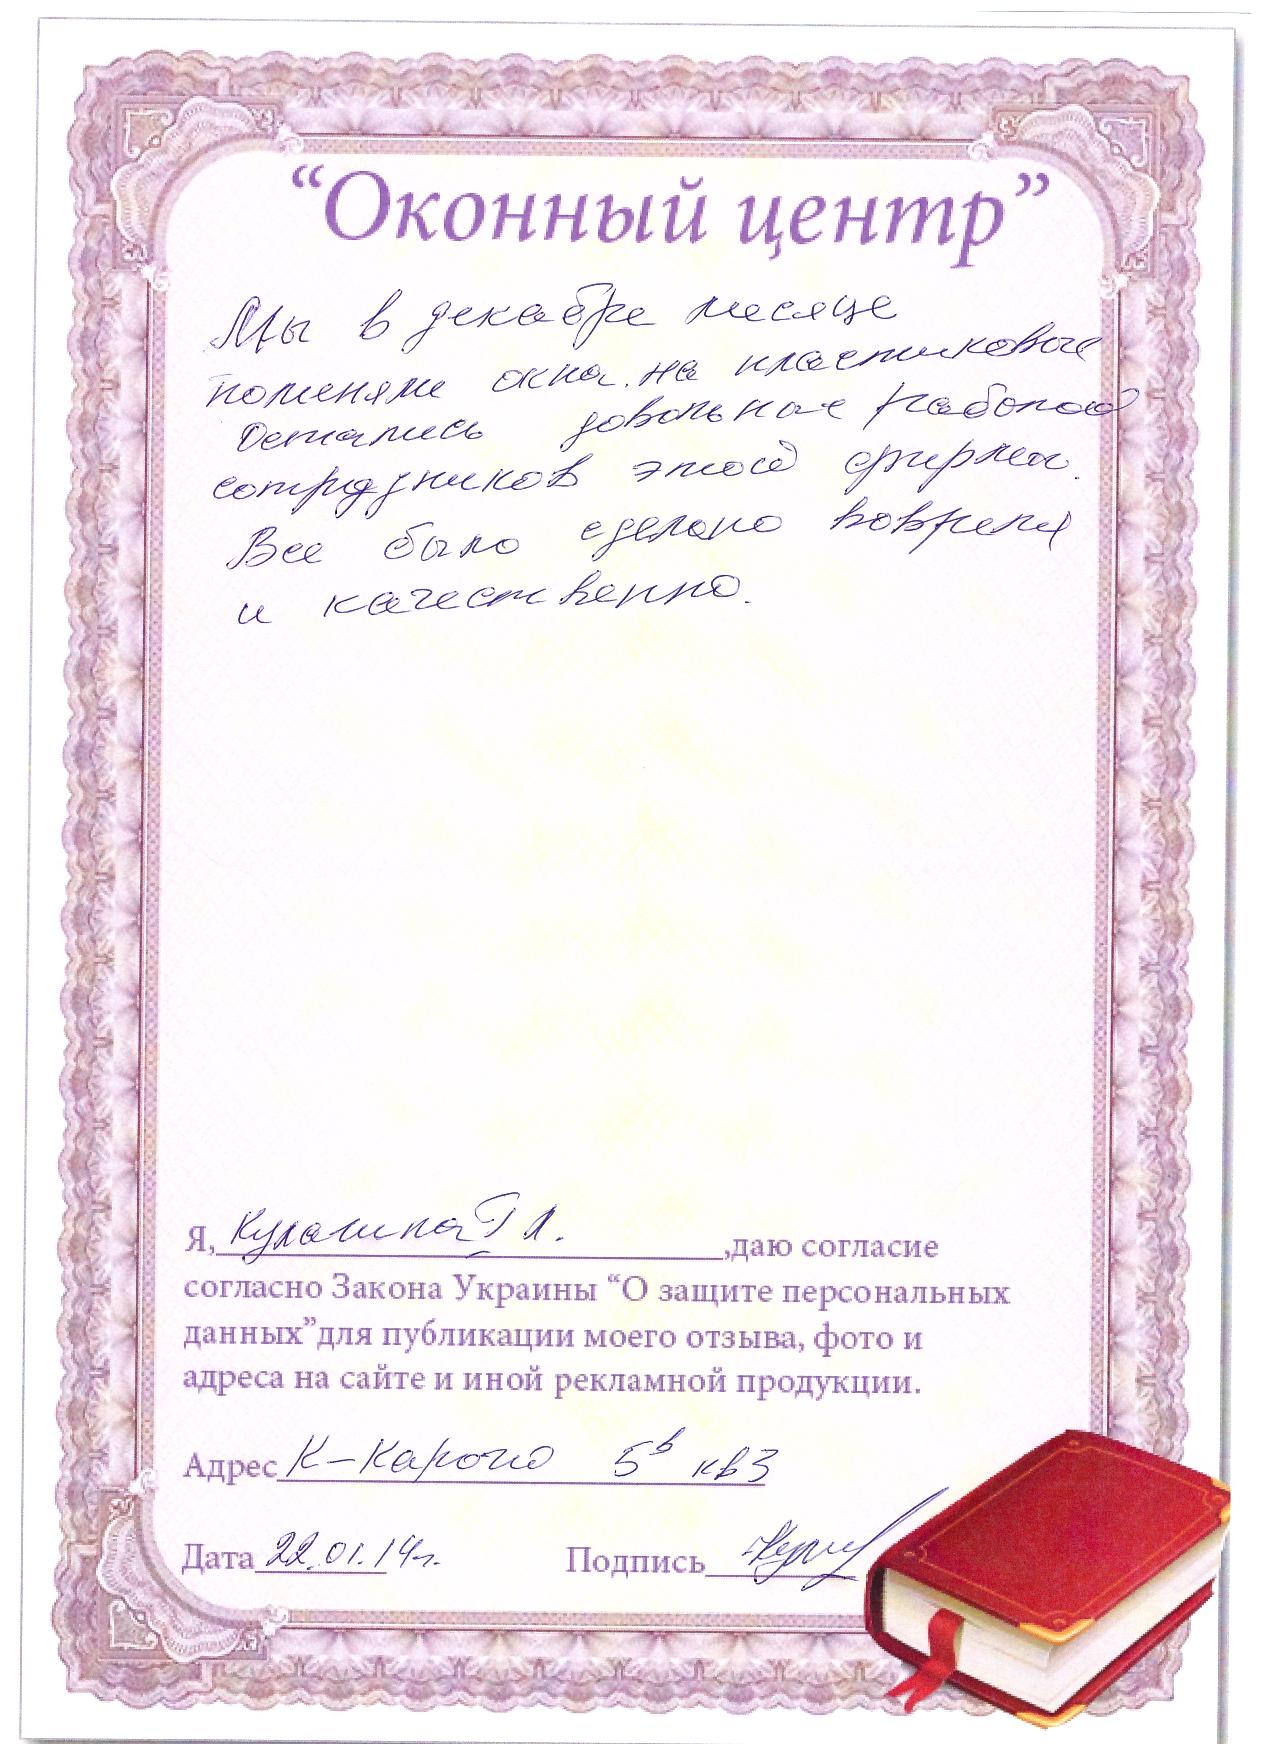 “Оконный центр”
Мы в декабре месяце
поменяли окна на пластиковые
Остались довольные работой
сотрудников этой фирмы.
Все было сделано вовремя
и качественно.
Я, Г Л. ,даю согласие
согласно Закона Украины “О защите персональных
данных”для публикации моего отзыва, фото и
адреса на сайте и иной рекламной продукции.
Адрес К-Карого 5в кв3
Дата 22.01.14г. Подпись